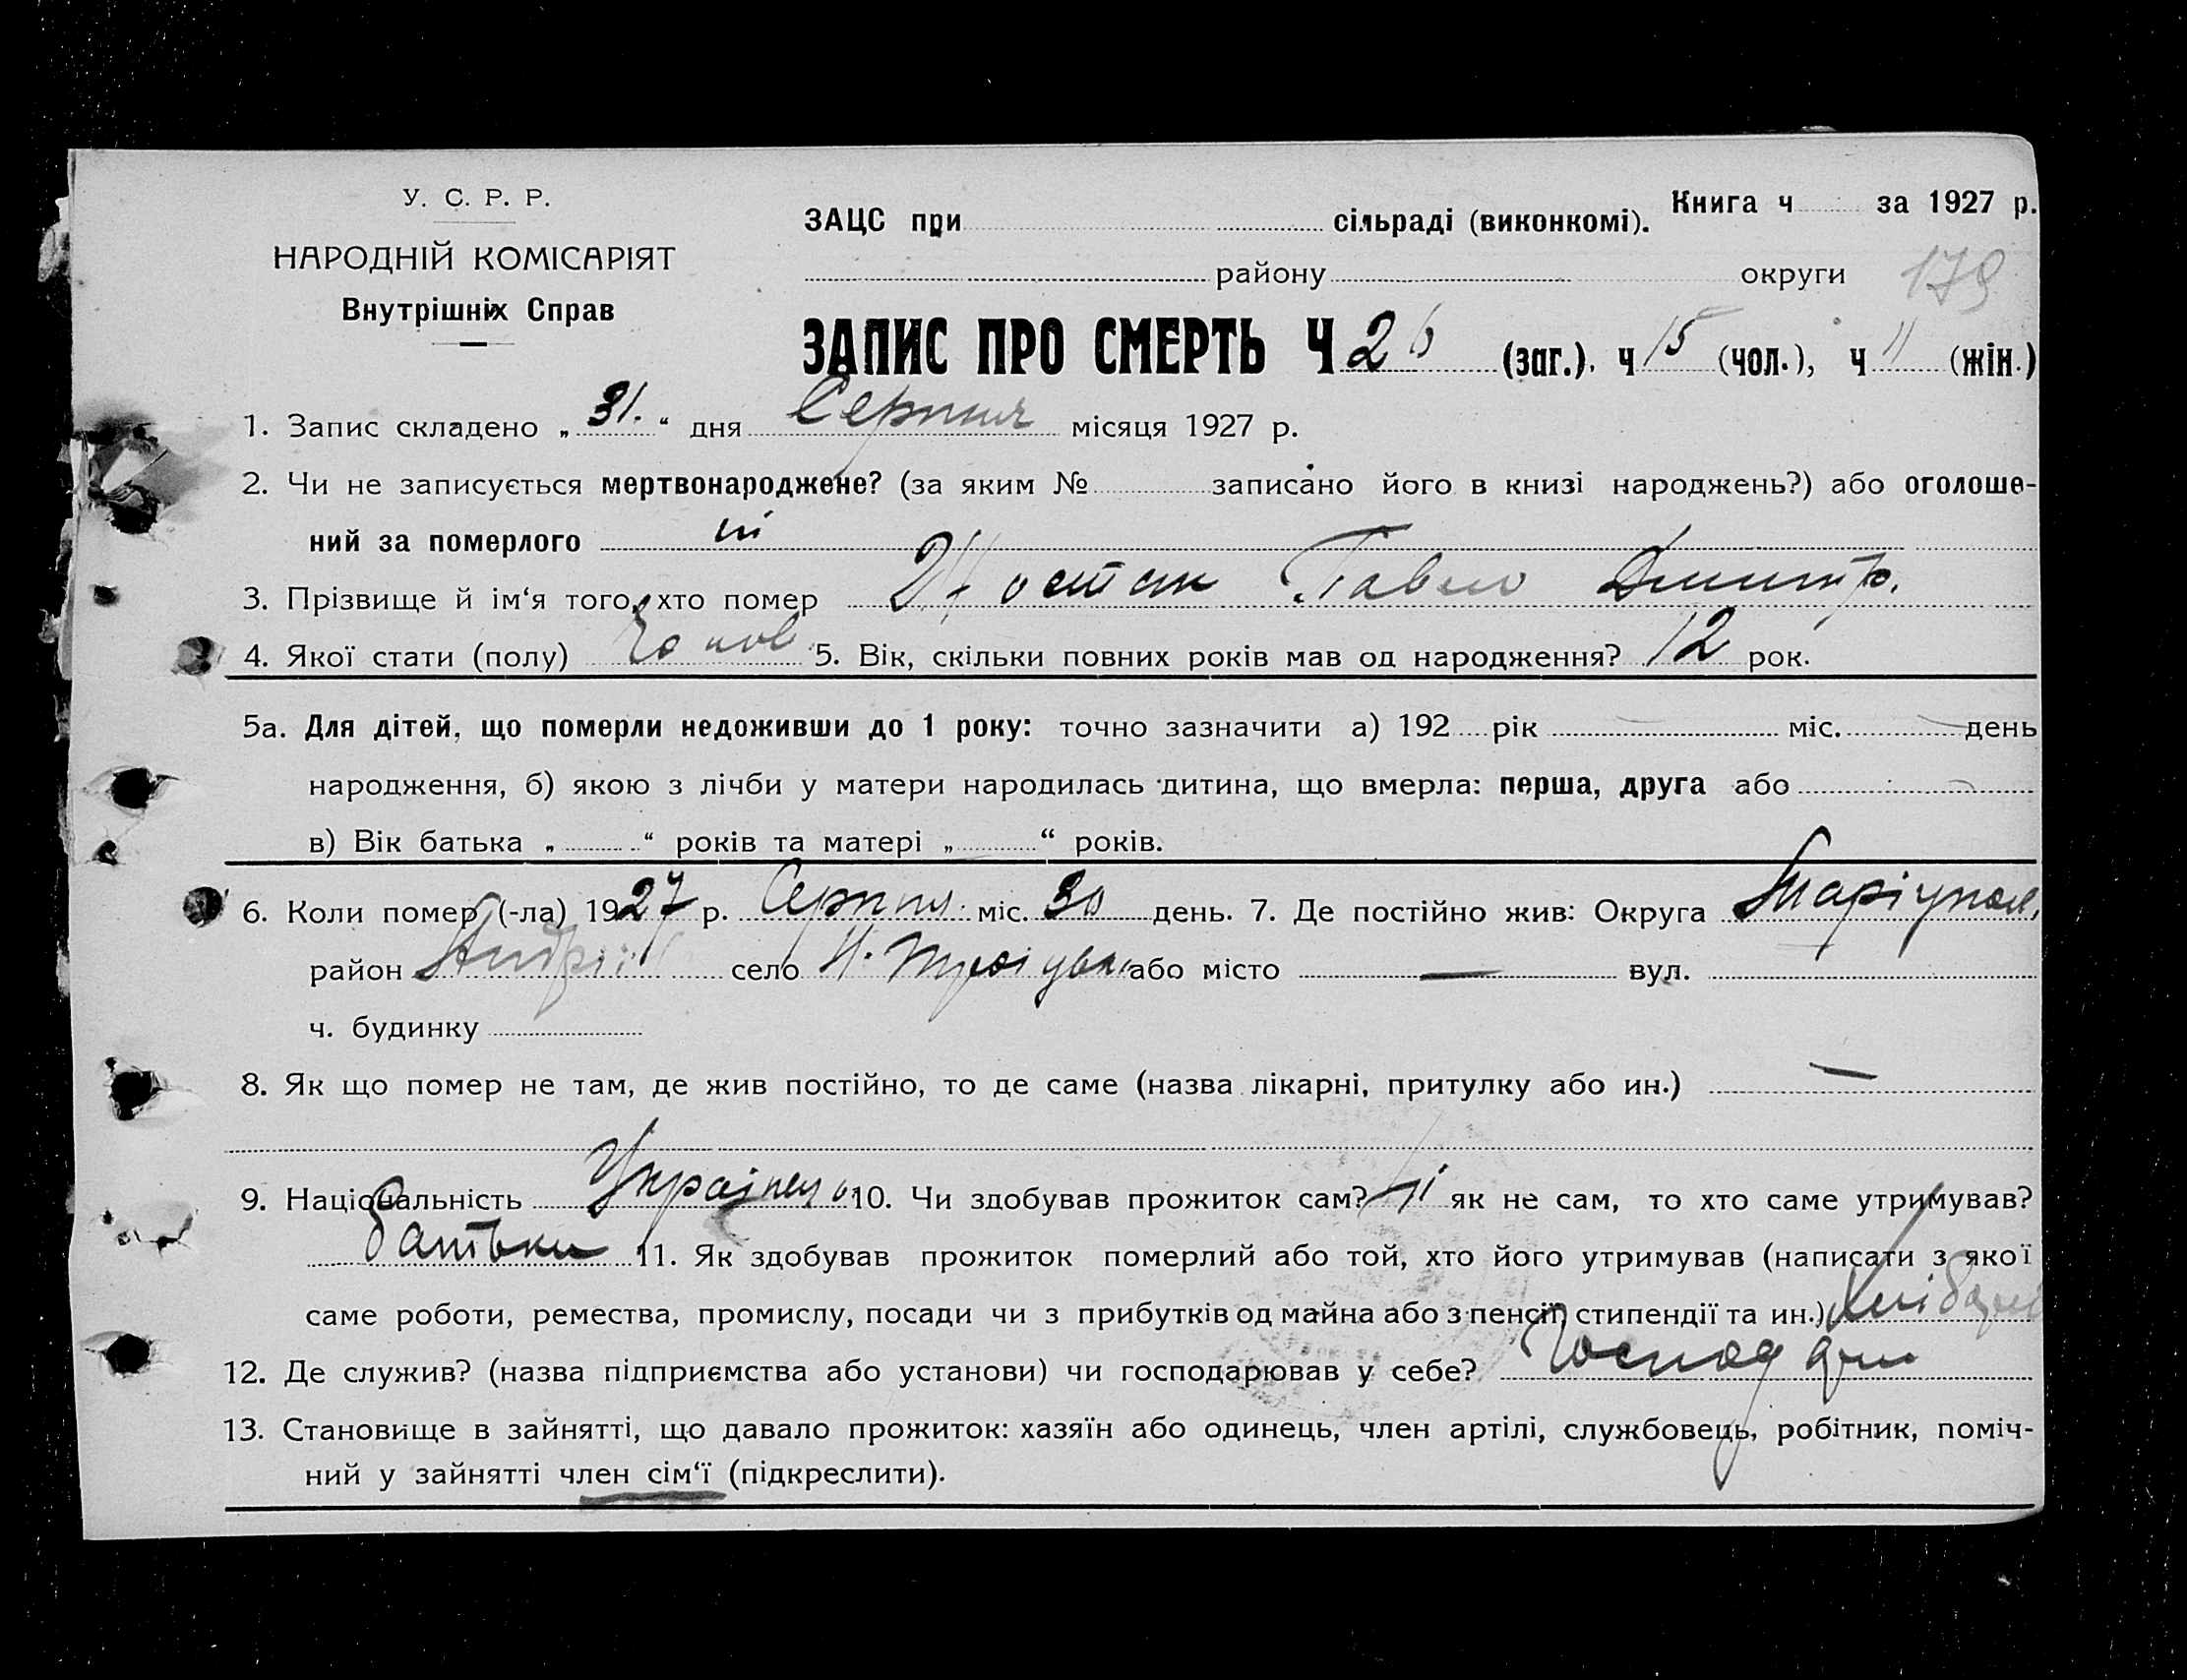 У. С. Р. Р.
НАРОДНІЙ КОМІСАРІЯТ
Внутрішніх Справ
Книга ч за 1927 р.
ЗАЦС при сільраді (виконкомі).
району округи 179
ЗАПИС ПРО СМЕРТЬ Ч 26 (заг.). ч 15 (чол.), ч 11 (жін.)
1. Запис складено „ 31. “ дня Серпня місяця 1927 р.
2. Чи не записується мертвонароджене? (за яким № записано його в книзі народжень?) або оголоше-
ний за померлого ні
3. Прізвище й ім‘я того, хто помер Павло Дмитр.
4. Якої стати (полу) Чолов. 5. Вік, скільки повних років мав од народження? 12 рок.
5а. Для дітей, що померли недоживши до 1 року: точно зазначити а) 192 рік міс. день
народження, б) якою з лічби у матери народилась дитина, що вмерла: перша, друга або
в) Вік батька „ “ років та матері „ “ років.
6. Коли помер (-ла) 1927 р. Серпня міс. 30 день. 7. Де постійно жив: Округа Маріупол.
район Андрії село або місто — вул.
ч. будинку
8. Як що помер не там, де жив постійно, то де саме (назва лікарні, притулку або ин.) —
9. Національність Українець 10. Чи здобував прожиток сам? Ні як не сам, то хто саме утримував?
батьки 11. Як здобував прожиток померлий або той, хто його утримував (написати з якої
саме роботи, ремества, промислу, посади чи з прибутків од майна або з пенсії, стипендії та ин.)
12. Де служив? (назва підприємства або установи) чи господарював у себе?
13. Становище в зайнятті, що давало прожиток: хазяїн або одинець, член артілі, службовець, робітник, поміч-
ний у зайнятті член сім‘ї (підкреслити).